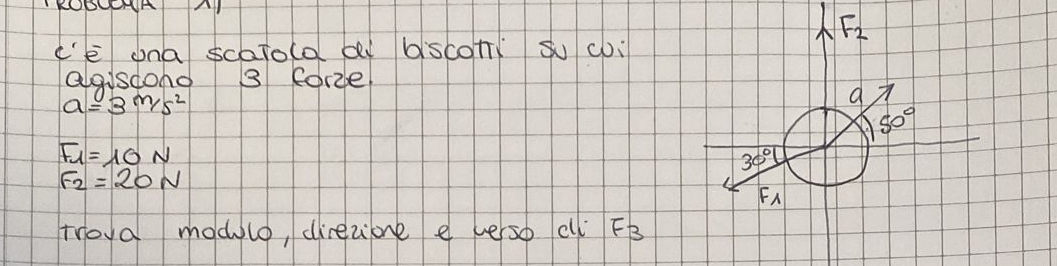 PROBLEMA 1)
c'è una scatola di biscotti su cui
agiscono 3 forze.
a=3 m/s²
F1=10 N
F2=20N
trova modulo, direzione e verso di F3
F2
a
50°
30°
F1